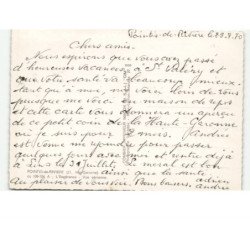 Pointis de Rivière le 23.7.70
Chers amis.
Nous espérons que vous avez passé
d'heureuses vacances à St Valéry et
que votre santé va beaucoup mieux.
tant qu'à moi, me voici loin de vous
puisque me voici en maison de repos
et cette carte vous donnera un aperçu
de ce petit coin de la Haute Garonne
où je suis pour mois. Andrée
est venue me rejoindre pour passer
quelques jours avec moi et rentre déjà
à la 31 Juillet, le moral est bon
ainsi que la santé
Au plaisir de vous voir. Bons baisers.
André
POINTIS-de-RIVIERE